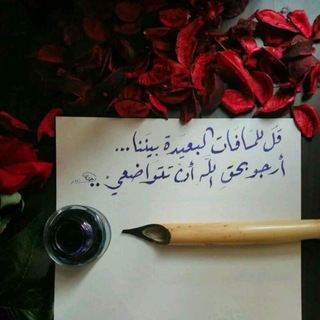 قل للمسافات البعيدة بيننا...
أرجو بحق الله أن تتواضعي..